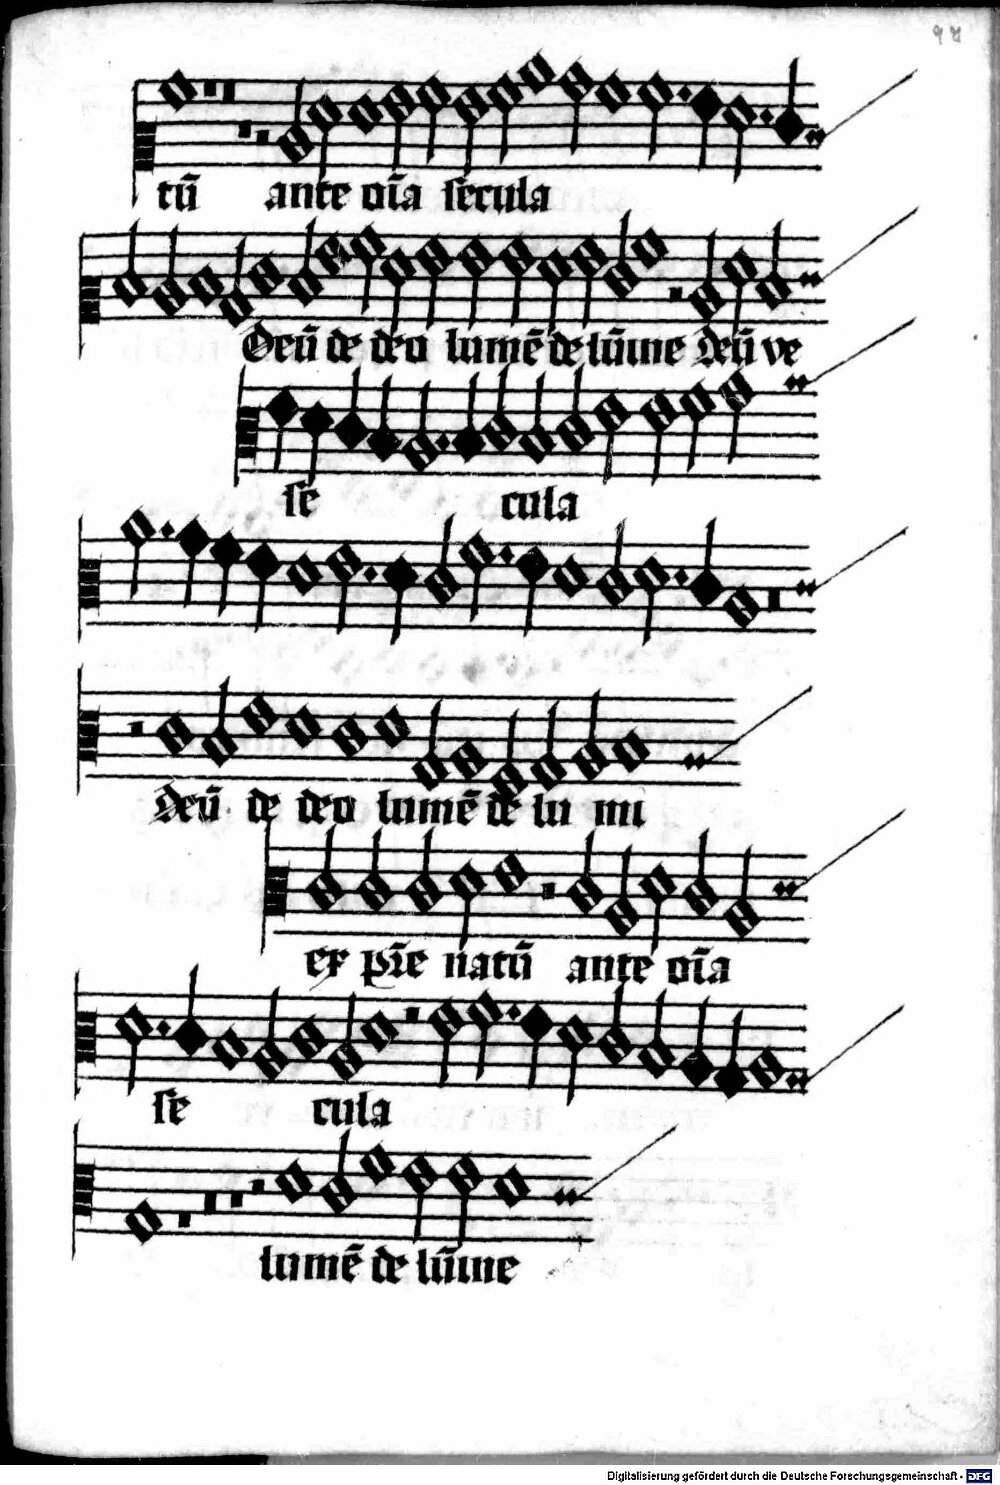 tū ante oīa secula
Deū de deo lumē de lūine deū ve
se cula
Deū de deo lumē de lu mi
ex prīe natū ante oīa
se cula
lumē de lūine
Digitalisierung gefördert durch die Deutsche Forschungsgemeinschaft - DFG